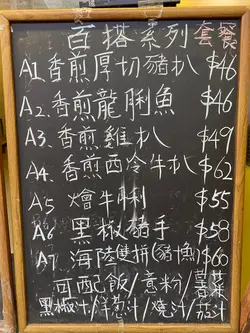 百搭系列 套餐
A1.香煎厚切豬扒 $46
A2.香煎龍脷魚 $46
A3.香煎雞扒 $49
A4.香煎西冷牛扒 $62
A5 燴牛脷 $55
A6 黑椒豬手 $58
A7 海陸雙拼(豬魚) $60
可配飯/意粉/薯菜
黑椒汁/洋葱汁/燒汁/茄汁